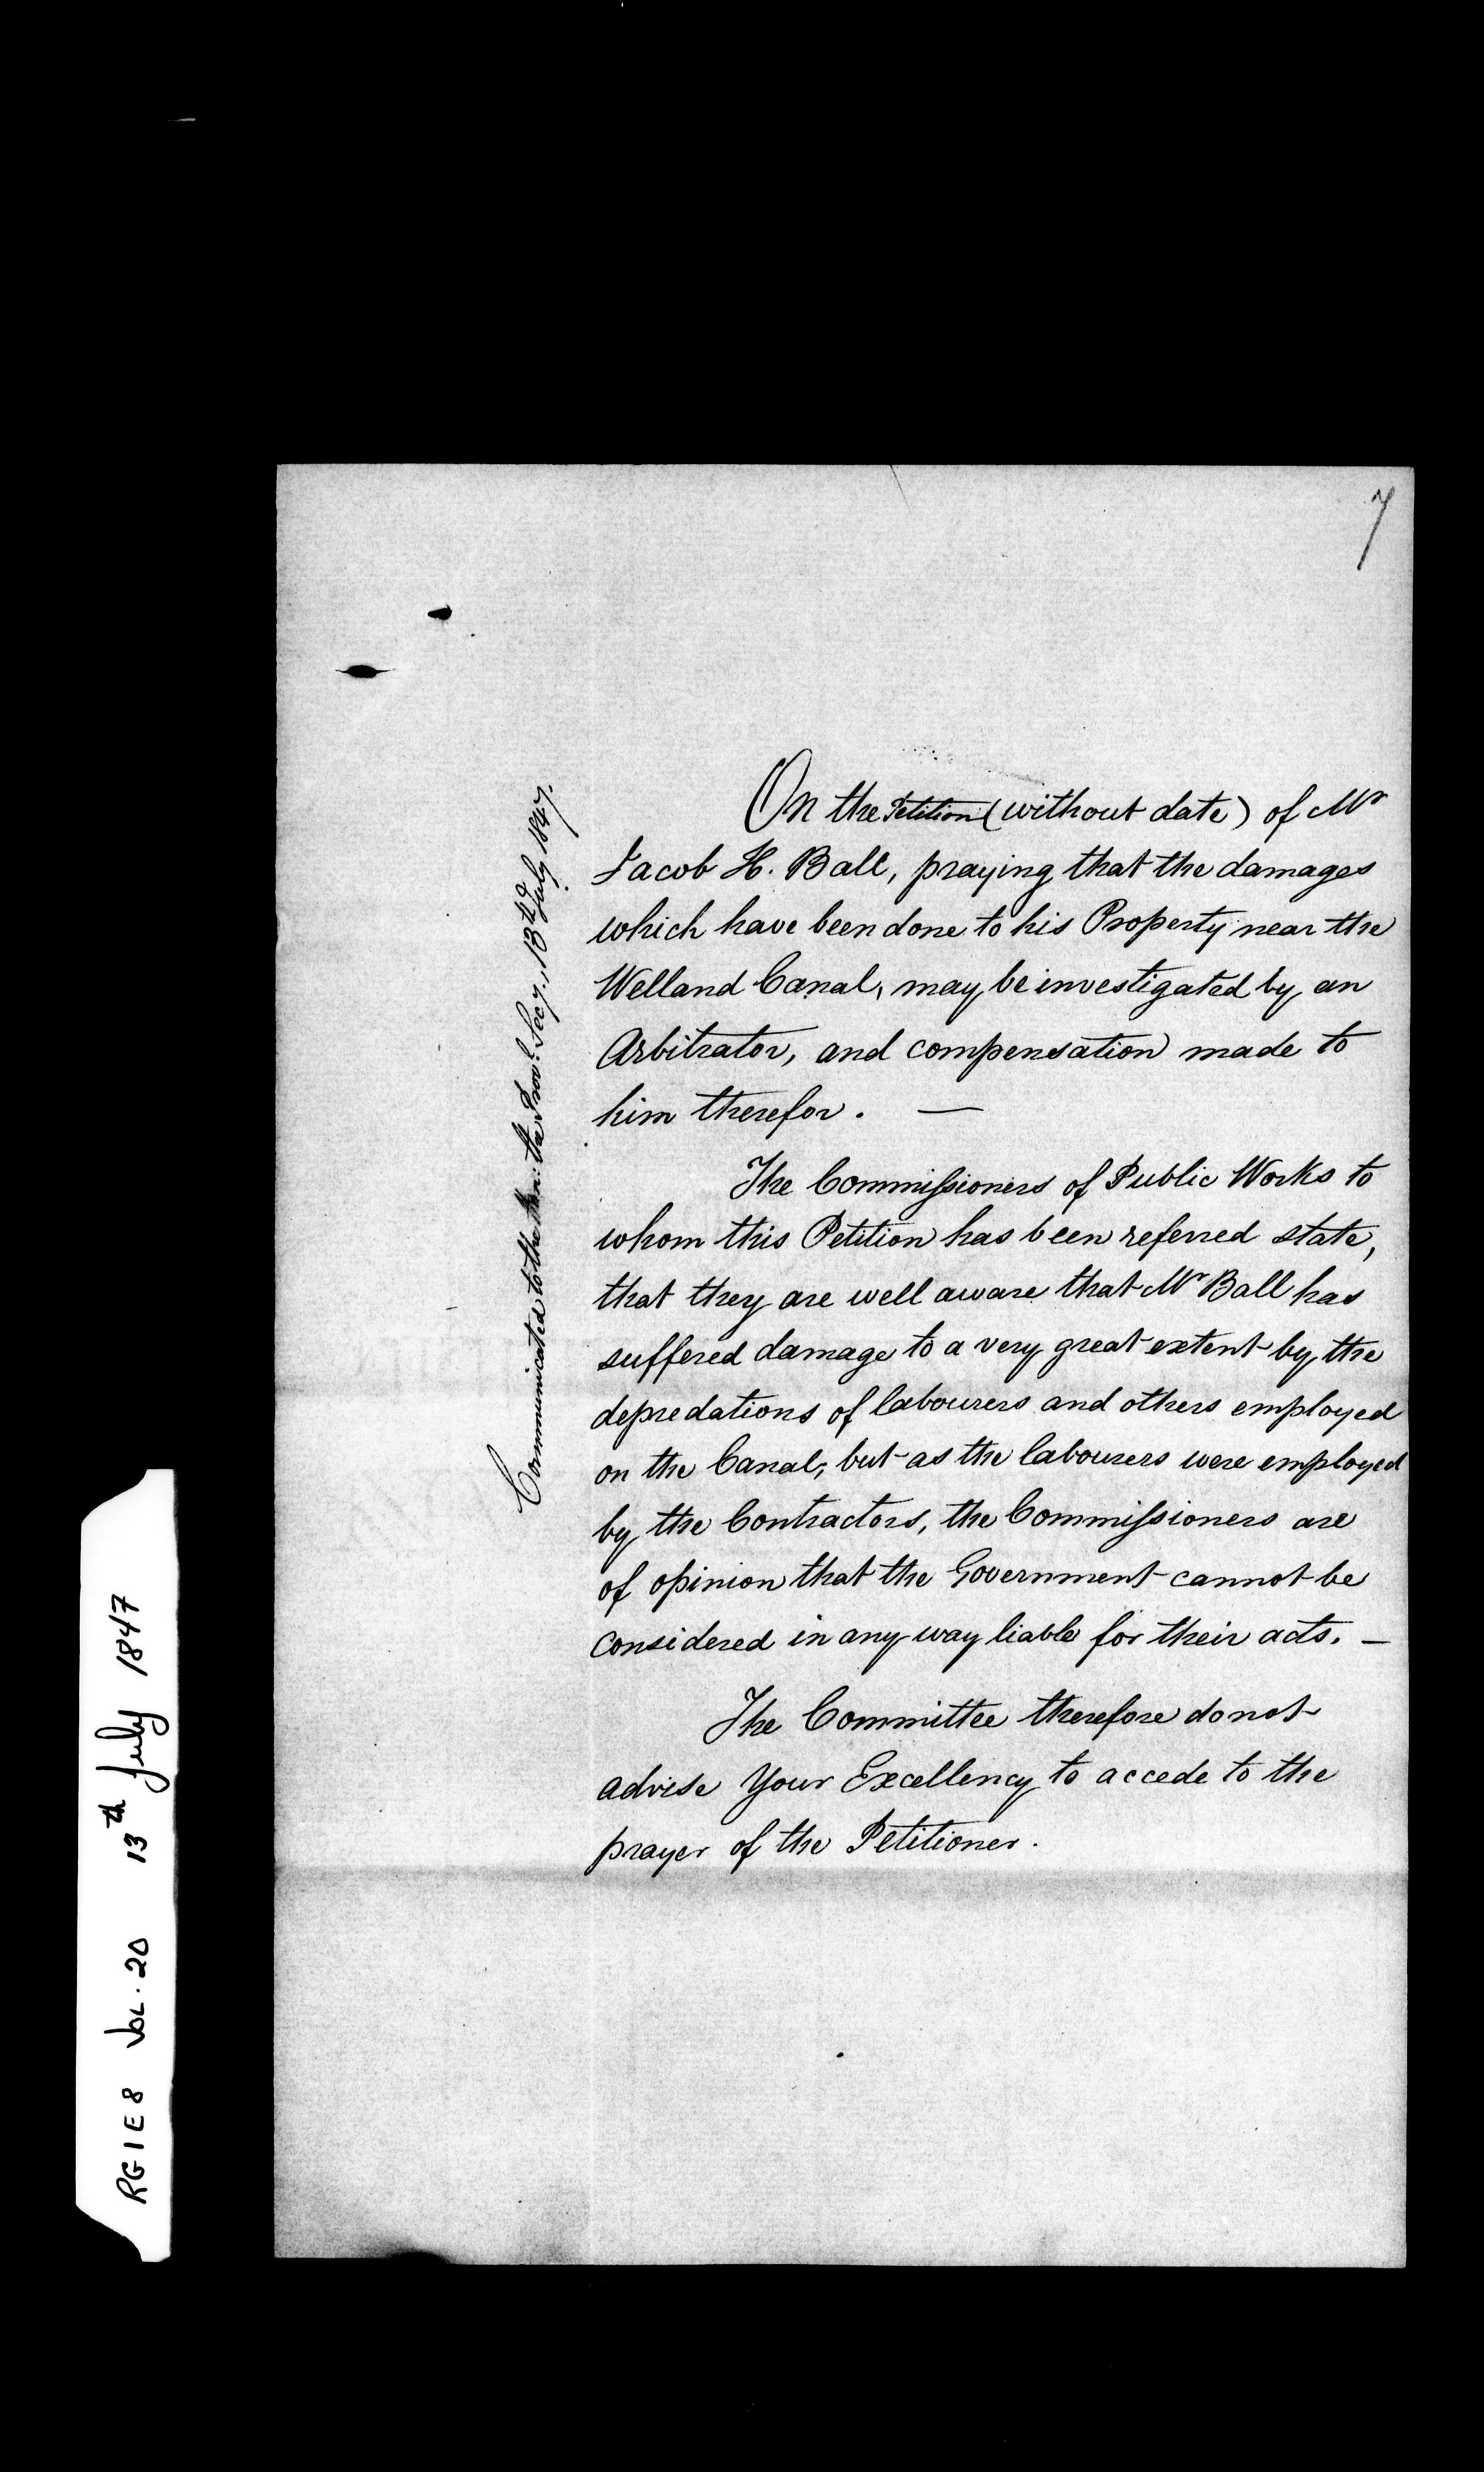 7
On the Petition (without date) of Mr
Jacob H. Ball, praying that the damages
which have been done to his Property near the
Welland Canal, may be investigated by an
Arbitrator, and compensation made to
him therefor. —
The Commissioners of Public Works to
whom this Petition has been referred state,
that they are well aware that Mr Ball has
suffered damage to a very great extent by the
depredations of labourers and others employed
on the Canal; but as the labourers were employed
by the Contractors, the Commissioners are
of opinion that the Government cannot be
considered in any way liable for their acts. —
The Committee therefore do not
advise Your Excellency to accede to the
prayer of the Petitioner.
Communicated to the Hon: the Provl. Secy., 13th July 1847.
RG 1 E 8 Vol. 20 13th July 1847